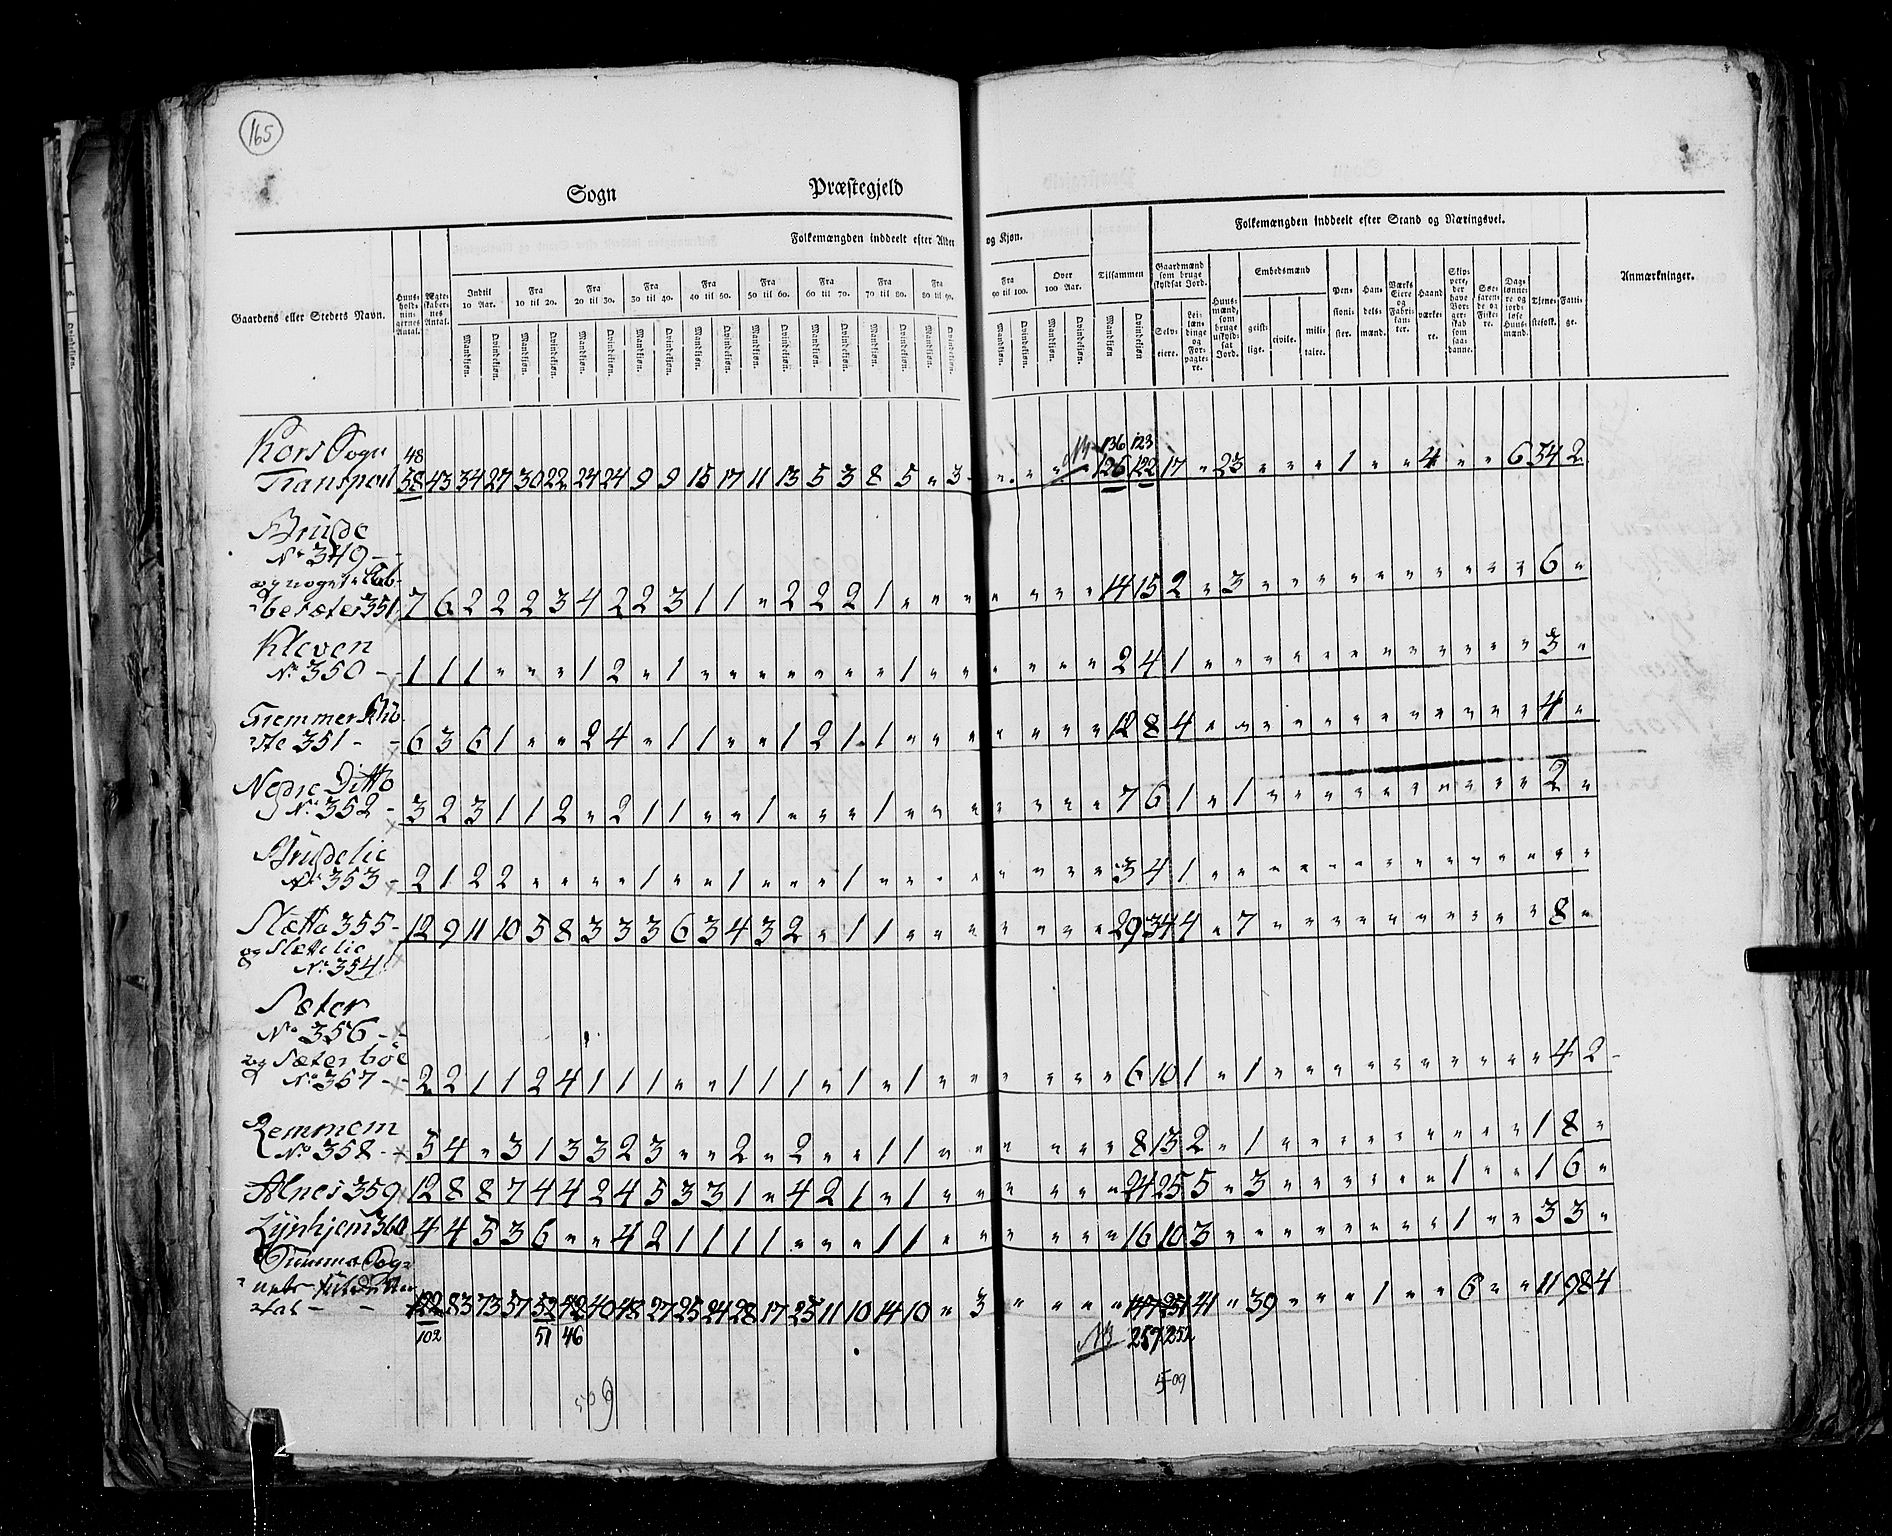 165
Sogn Præstegjeld
Folkemængden inddeelt efter Alder og Kjøn.
Folkemængden inddeelt efter Stand og Næringsvei.
Gaardens eller Stedets Navn.
Huus-hold-nin-gernes Antal.
Ægte-skaber-nes Antal.
Indtil 10 Aar.
Fra 10 til 20.
Fra 20 til 30.
Fra 30 til 40.
Fra 40 til 50.
Fra 50 til 60.
Fra 60 til 70.
Fra 70 til 80.
Fra 80 til 90.
Fra 90 til 100.
Over 100 Aar.
Tilsammen
Mandkjøn. Qvindekjøn. Mandkjøn. Qvindekjøn. Mandkjøn. Qvindekjøn. Mandkjøn. Qvindekjøn. Mandkjøn. Qvindekjøn. Mandkjøn. Qvindekjøn. Mandkjøn. Qvindekjøn. Mandkjøn. Qvindekjøn. Mandkjøn. Qvindekjøn. Mandkjøn. Qvindekjøn. Mandkjøn. Qvindekjøn. Mandkjøn Qvindekjøn
Gaardmænd som bruge skyldsat Jord.
Selv-eiere.
Lei-læn-dinge og For-pagte-re.
Huus-mænd, som bruge uskyld-sat Jord.
Embedsmænd
geist-lige.
civile.
mili-taire.
Pen-sioni-ster.
Han-dels-mænd.
Værks Eiere og Fabri-kan-ter.
Haand værke-re.
Skip-pere, der have Bor-ger-skab som saa-danne.
Søe-faren-de og Fiske-re.
Dag-lønne-re og jord-løse Huus-mænd.
Tjene-stefolk.
Fatti-ge.
Anmærkninger.
Kors Sogn 48 136 123
Transport 58 43 34 27 30 22 24 24 9 9 15 17 11 13 5 3 8 5 „ 3 „ „ „ „ 126 122 17 „ 23 „ „ „ 1 „ „ 4 „ „ 6 54 2
Brude
No 349
351 7 6 2 2 2 3 4 2 2 3 1 1 „ 2 2 2 1 „ „ „ „ „ „ „ 14 15 2 „ 3 „ „ „ „ „ „ „ „ „ „ 6 „
Kleven
No 350 - 1 1 1 „ „ „ 1 2 „ 1 „ „ „ „ „ „ „ 1 „ „ „ „ „ „ 2 4 1 „ „ „ „ „ „ „ „ „ „ „ „ 3 „
351 - 6 3 6 1 „ „ 2 4 „ 1 1 „ „ 1 2 1 1 „ „ „ „ „ „ „ 12 8 4 „ „ „ „ „ „ „ „ „ „ „ „ 4 „
Nedre Ditto
No 352 - 3 2 3 1 1 2 „ 2 1 1 „ „ 1 „ „ „ 1 „ „ „ „ „ „ „ 7 6 1 „ 1 „ „ „ „ „ „ „ „ „ „ 2 „
Brudelie
No 353 - 2 1 2 2 „ „ „ „ 1 „ „ 1 „ „ „ 1 „ „ „ „ „ „ „ „ 3 4 1 „ „ „ „ „ „ „ „ „ „ „ „ „ „
Slætta 355 - 12 9 11 10 5 8 3 3 3 6 3 4 3 2 „ 1 1 „ „ „ „ „ „ „ 29 34 4 „ 7 „ „ „ „ „ „ „ „ „ „ 8 „
og Slættelie
No 354
Sæter
No 356 -
og Sæterböe
No 357 - 2 2 1 1 2 4 1 1 1 „ „ 1 1 1 „ 1 „ 1 „ „ „ „ „ „ 6 10 1 „ 1 „ „ „ „ „ „ „ „ „ „ 4 2
Remmem
No 358 - 5 4 „ 3 1 3 3 2 3 „ „ 2 „ 2 „ „ 1 1 „ „ „ „ „ „ 8 13 2 „ 1 „ „ „ „ „ „ „ „ „ 1 8 „
Alnes 359 12 8 8 7 4 4 2 4 5 3 3 1 „ 4 2 1 „ 1 „ „ „ „ „ „ 24 25 5 „ 3 „ „ „ „ „ „ 1 „ „ 1 6 „
Lynhjem 360 4 4 5 3 6 „ „ 4 2 1 1 1 1 „ „ „ 1 1 „ „ „ „ „ „ 16 10 3 „ „ „ „ „ „ „ „ 1 „ „ 3 3 „
Summa Sog-
83 73 57 52 48 40 48 27 25 24 28 17 25 11 10 14 10 „ 3 „ „ „ „ 251 41 „ 39 „ „ „ 1 „ „ 6 „ „ 11 98 4
102 51 46 NB 257 252
509 509